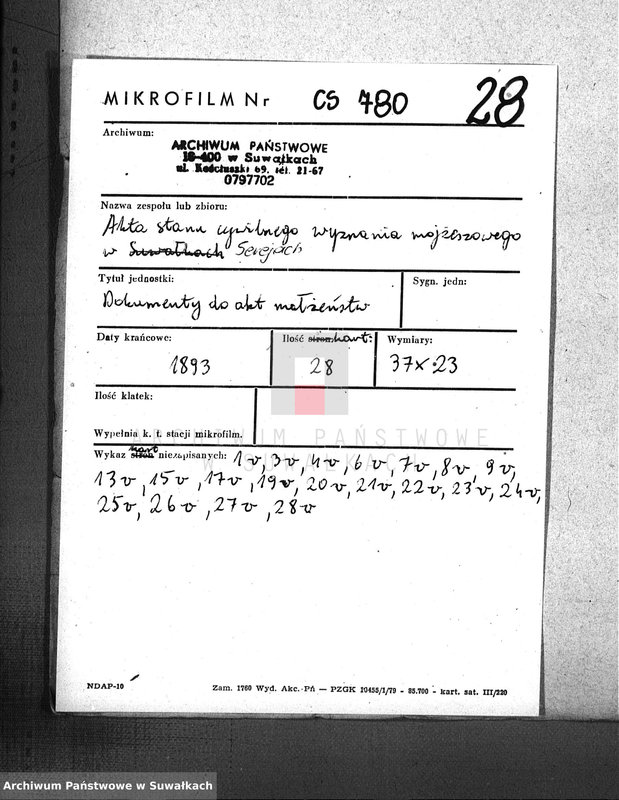 MIKROFILM Nr CS 780 28
Archiwum:
ARCHIWUM PAŃSTWOWE
16-400 w Suwałkach
ul. Kościuszki 69, tel. 21-67
0797702
Nazwa zespołu lub zbioru:
Akta stanu cywilnego wyznania mojżeszowego
w Suwałkach Serejach
Tytuł jednostki:
Sygn. jedn:
Dokumenty do akt małżeństw
Daty krańcowe:
1893
Ilość stron. kart:
28
Wymiary:
37x23
Ilość klatek:
Wypełnia k. t. stacji mikrofilm.
ARCHIWUM PAŃSTWOWE
W SUWAŁKACH
kart
Wykaz stron niezapisanych: 1v, 3v, 4v, 6v, 7v, 8v, 9v,
13v, 15v, 17v, 19v, 20v, 21v, 22v, 23v, 24v,
25v, 26v, 27v, 28v
NDAP-10
Zam. 1760 Wyd. Akc.-Pń — PZGK 10455/1/79 - 85.700 - kart. sat. III/220
Archiwum Państwowe w Suwałkach